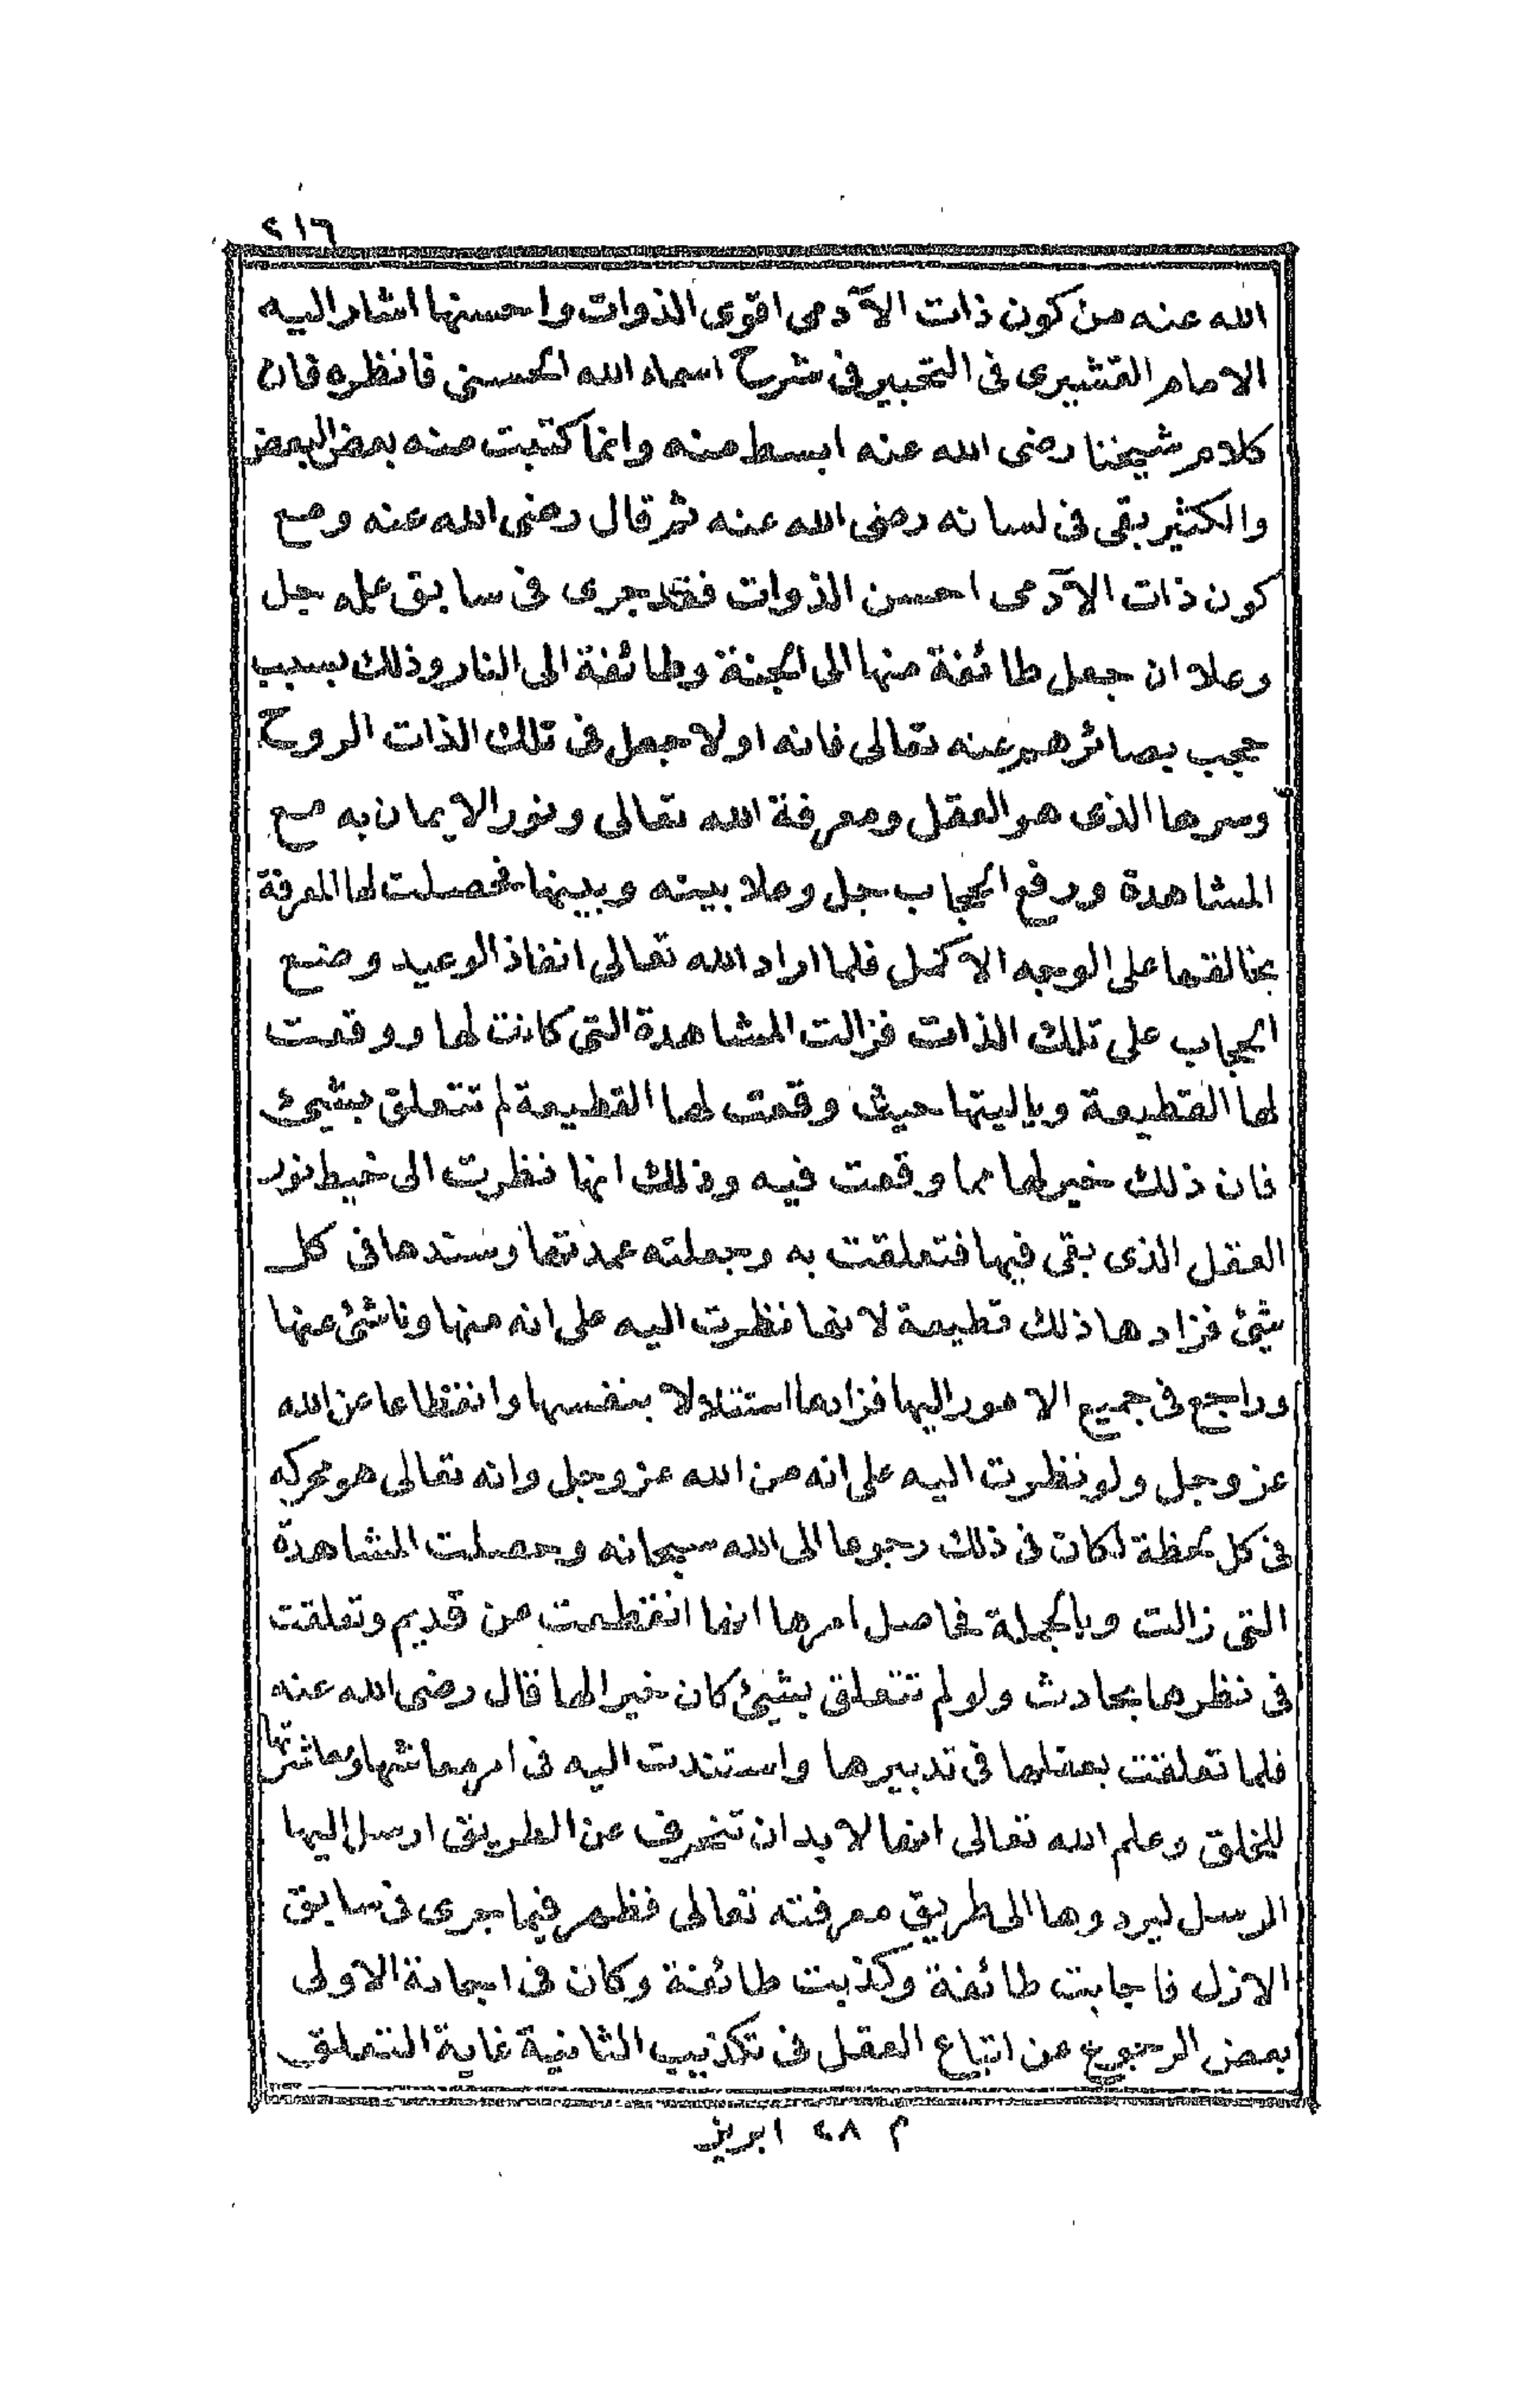 ٢١٦
الله عنه من كون ذات الآدمى اقوى الذوات واحسنها اشار اليه
الامام القشيرى فى التحبير فى شرح اسماء الله الحسنى فانظره فان
كلام شيخنا رضى الله عنه ابسط منه وانما كتبت منه بعض البعض
والكثير بقى فى لسانه رضى الله عنه ثم قال رضى الله عنه ومع
كون ذات الآدمى احسن الذوات فقد جرى فى سابق علمه جل
وعلا ان جعل طائفة منها الى الجنة وطائفة الى النار وذلك بسبب
حجب بصائرهم عنه تعالى فانه اولا جعل فى تلك الذات الروح
وسرها الذى هو العقل ومعرفة الله تعالى ونور الايمان به مع
المشاهدة ورفع الحجاب جل وعلا بينه وبينها فحصلت لها المعرفة
بخالقها على الوجه الاكمل فلما اراد الله تعالى انفاذ الوعيد وضع
الحجاب على تلك الذات فزالت المشاهدة التى كانت لها ووقعت
لها القطيعة وياليتها حيث وقعت لها القطيعة لم تتعلق بشيئ
فان ذلك خير لها مما وقعت فيه وذلك انها نظرت الى خيط نور
العقل الذى بقى فيها فتعلقت به وجعلته عمدتها وسندها فى كل
شيئ فزادها ذلك قطيعة لانها نظرت اليه على انه منها وناشئ عنها
وراجع فى جميع الامور اليها فزادها استقلالا بنفسها وانقطاعا عن الله
عز وجل ولو نظرت اليه على انه من الله عز وجل وانه تعالى هو محركه
فى كل لحظة لكان فى ذلك رجوعا الى الله سبحانه وحصلت المشاهدة
التى زالت وبالجملة فحاصل امرها انها انقطعت من قديم وتعلقت
فى نظرها بحادث ولو لم تتعلق بشيئ كان خيرا لها قال رضى الله عنه
فلما تعلقت بعقلها فى تدبيرها واستندت اليه فى امر معاشها ومعاشرتها
للخلق وعلم الله تعالى انها لابد ان تنحرف عن الطريق ارسل اليها
الرسل ليردوها الى طريق معرفته تعالى فظهر فيما جرى فى سابق
الازل فاجابت طائفة وكذبت طائفة وكان فى اجابة الاولى
بعض الرجوع عن اتباع العقل فى تكذيب الثانية غاية التعلق
م ٢٨ ابريز